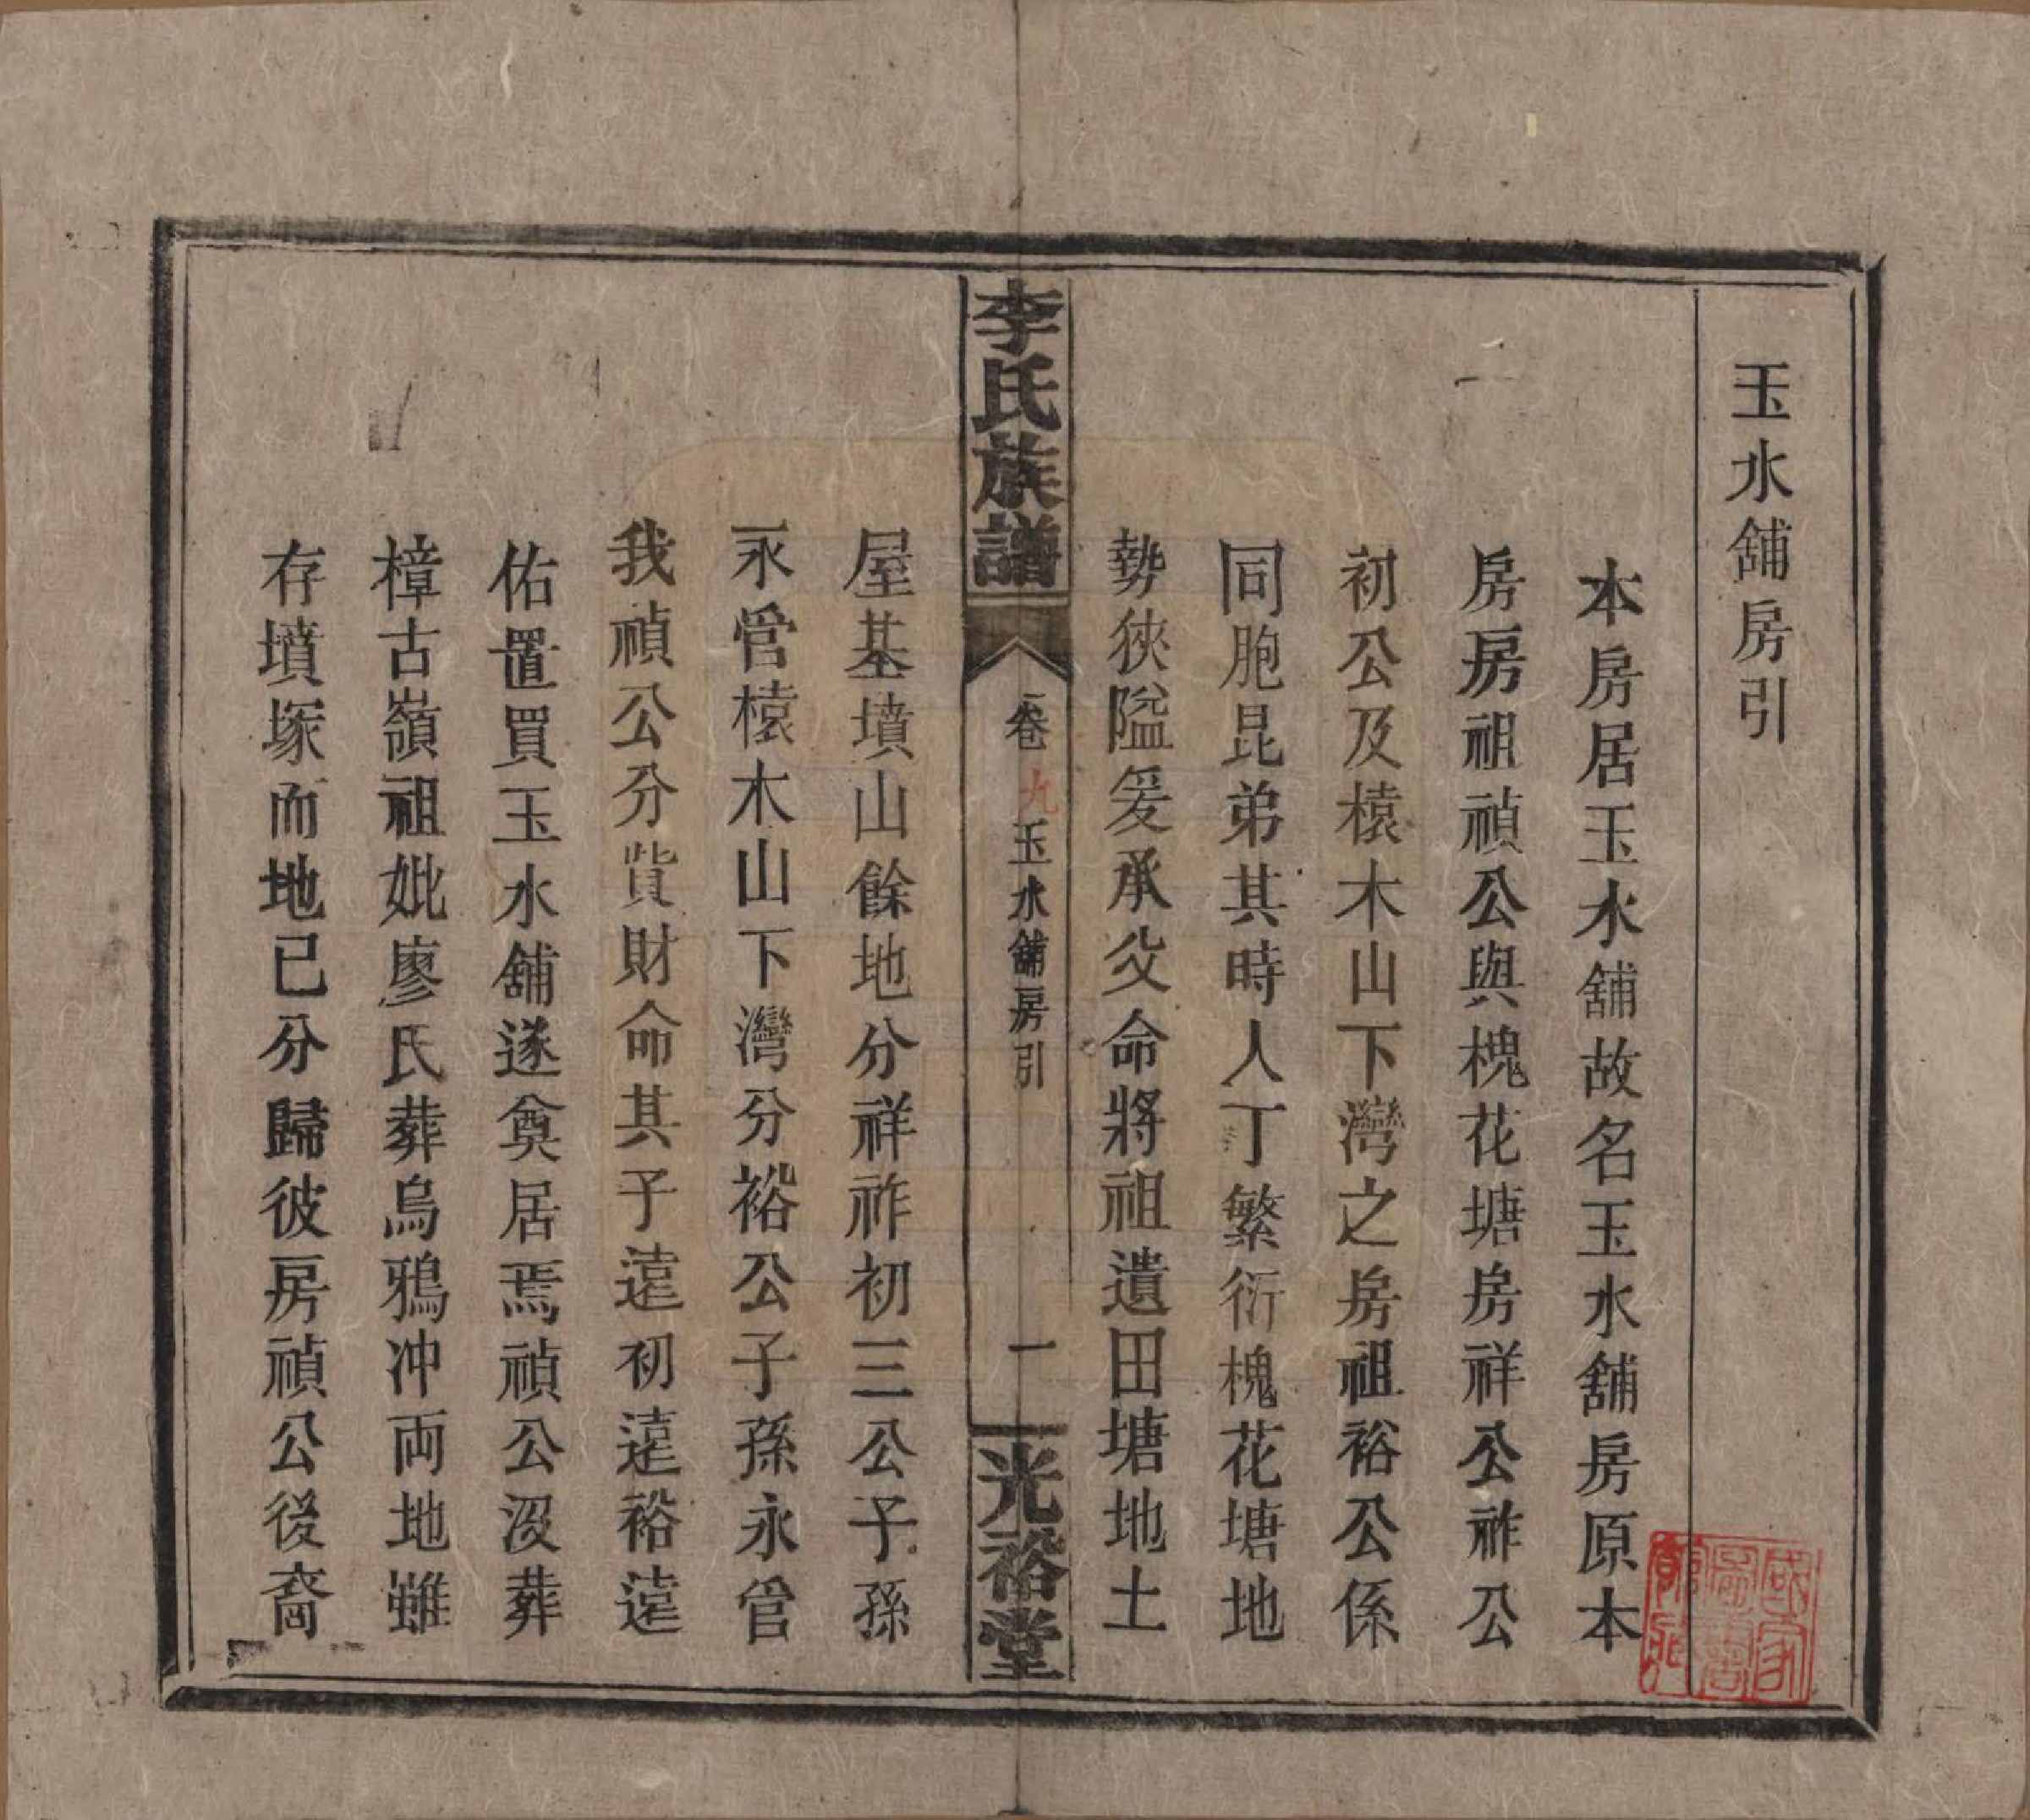 玉水舖房引
本房居玉水舖故名玉水舖房原本
房房祖禎公與槐花塘房祥公祚公
初公及榬木山下灣之房祖裕公係
同胞昆弟其時人丁繁衍槐花塘地
勢狹隘爰承父命將祖遺田塘地土
李氏族譜
卷九
玉水舖房引
一
光裕堂
屋基墳山餘地分祥祚初三公子孫
永管榬木山下灣分裕公子孫永管
我禎公分貲財命其子遠初遠裕遠
佑置買玉水舖遂奠居焉禎公沒葬
樟古嶺祖妣廖氏葬烏鴉冲両地雖
存墳塚而地已分歸彼房禎公後裔
國家圖書館藏